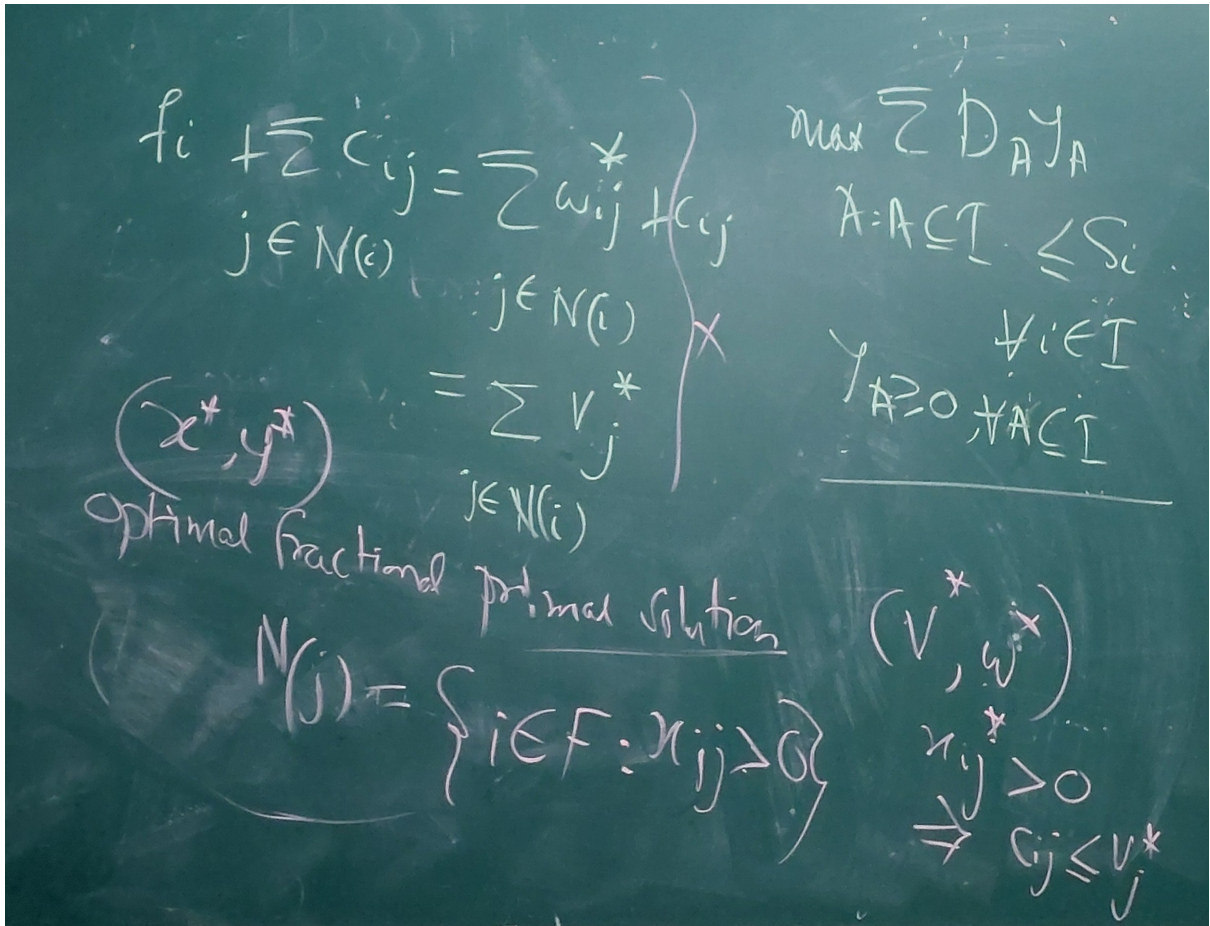 fi + Σ Cij = Σ wij* + Cij
j∈N(i)
j∈N(i)
= Σ Vj*
j∈N(i)
max Σ D_A Y_A
A:A⊆I ≤ Si
∀i∈I
Y_A≥0, ∀A⊆I
(x*, y*)
optimal fractional primal solution
N(j) = {i∈F : xij>0}
(V*, w*)
xij* > 0
⇒ Cij ≤ Vj*